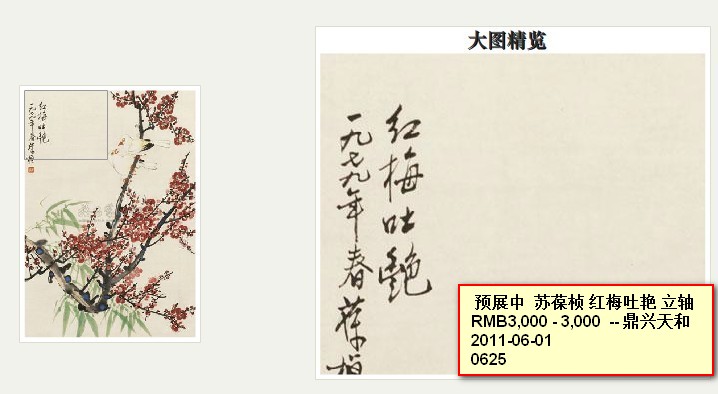 大图精览
红梅吐艳
一九七九年春葆桢
红梅吐艳
一九七九年春葆桢
预展中 苏葆桢 红梅吐艳 立轴
RMB3,000 - 3,000 -- 鼎兴天和
2011-06-01
0625